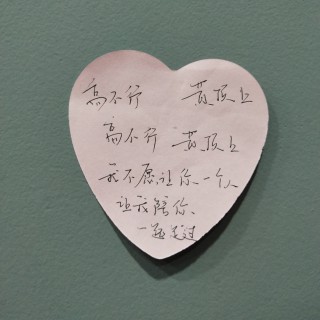 高不行 黄顶上
高不行 黄顶上
我不愿让你一个人
让我陪你
一起走过